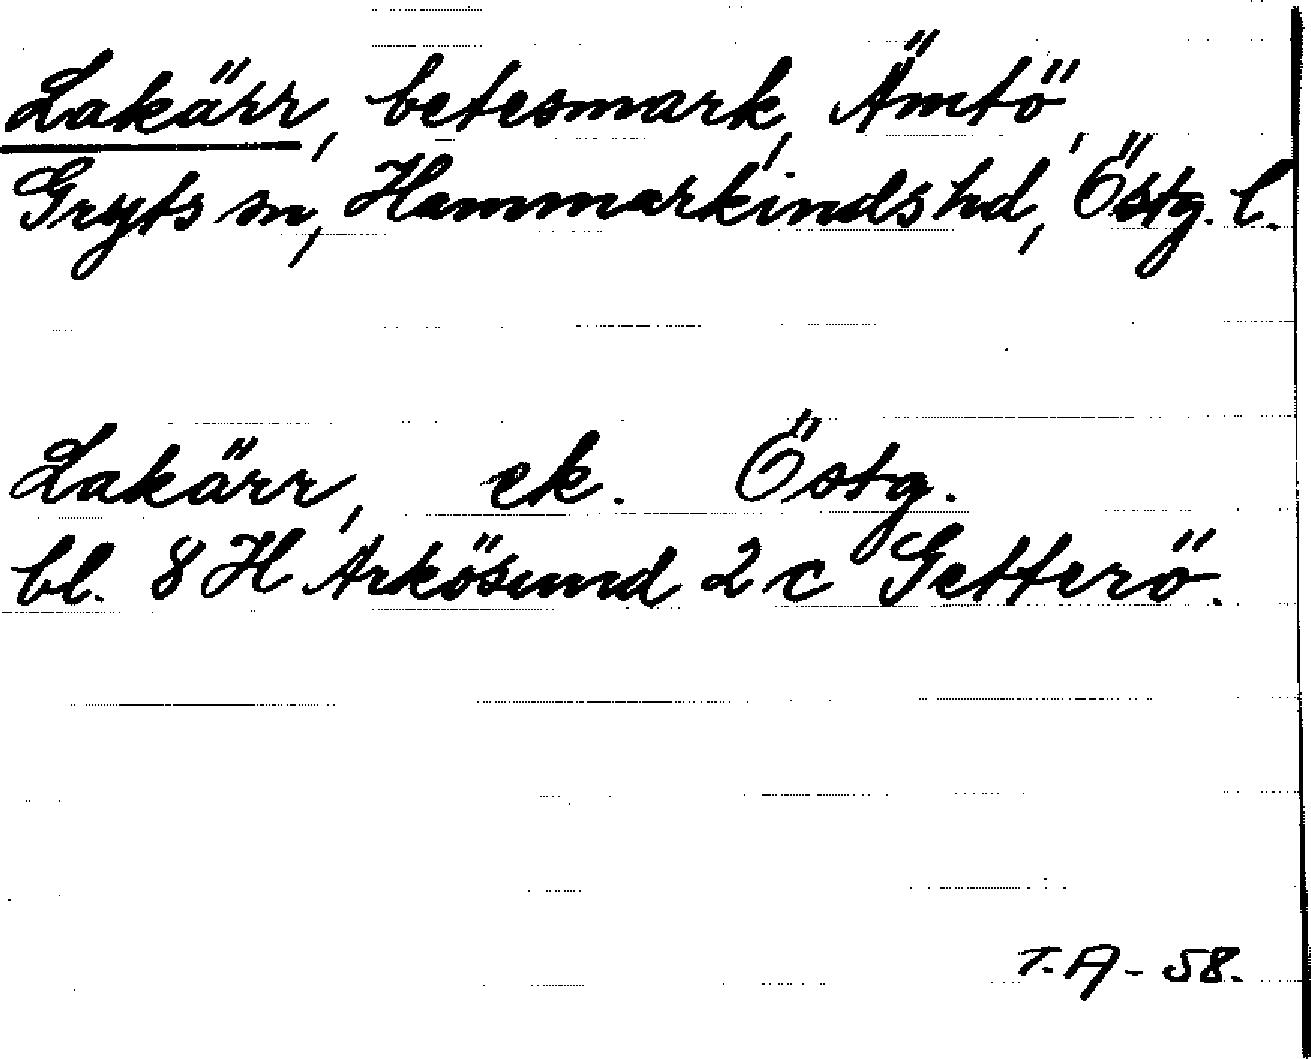 Lakärr, betesmark, Ämtö,
Gryts sn, Hammarkinds hd, Östg. l.
Lakärr, ek. Östg.
bl. 8 H Arkösund 2 c Getterö.
T. A - 58.